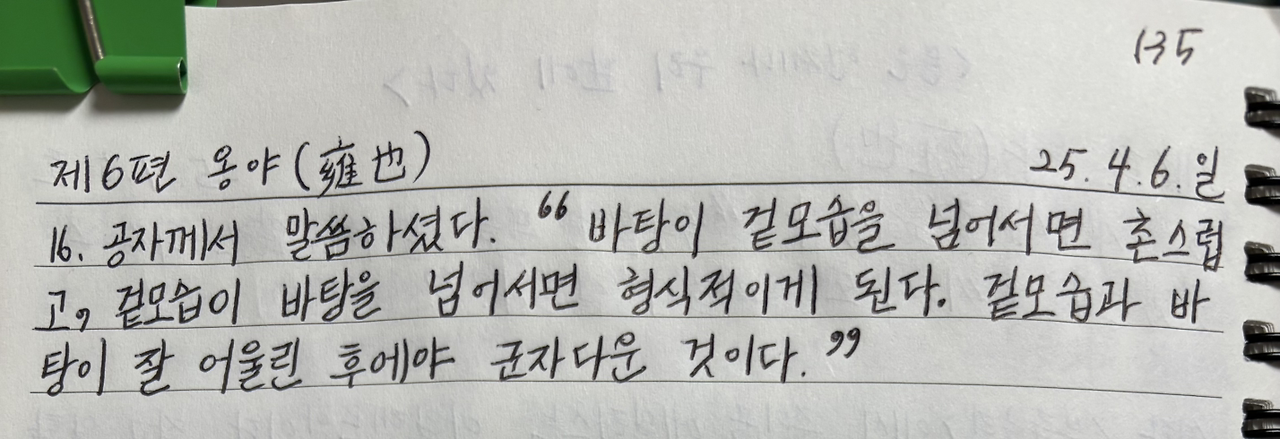 135
제6편 옹야(雍也) 25.4.6.일
16. 공자께서 말씀하셨다. “바탕이 겉모습을 넘어서면 촌스럽
고, 겉모습이 바탕을 넘어서면 형식적이게 된다. 겉모습과 바
탕이 잘 어울린 후에야 군자다운 것이다.”